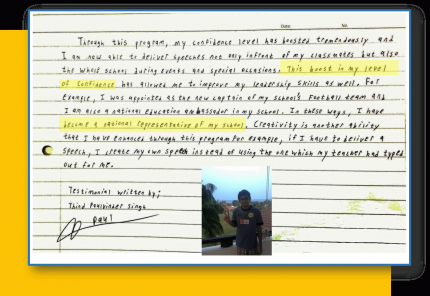 Date: No.
Through this program, my confidence level has boosted tremendously and
I am now able to deliver speeches not only infront of my classmates but also
the whole school during events and special occasions. This boost in my level
of confidence has allowed me to improve my leadership skills as well. For
example, I was appointed as the new captain of my school's football team and
I am also a national education ambassador in my school. In these ways, I have
become a national representative of my school. Creativity is another ability
that I have enhanced through this program for example, if I have to deliver a
speech, I create my own speech instead of using the one which my teacher had typed
out for me.
Testimonial written by;
Thind Paulvinder Singh
paul